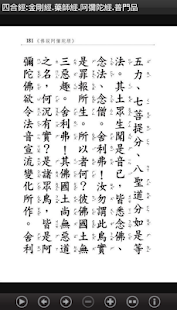 四合經:金剛經.藥師經.阿彌陀經.普門品
《佛說阿彌陀經》
五力、七菩提分、八聖道分如是等
法。其土眾生聞是音已，皆悉念佛、
念法、念僧。舍利弗！汝勿謂此鳥實
是罪報所生，所以者何？彼佛國土無
三惡趣。舍利弗！其佛國土尚無惡道
之名，何況有實？是諸眾鳥，皆是阿
彌陀佛欲令法音宣流變化所作。舍利